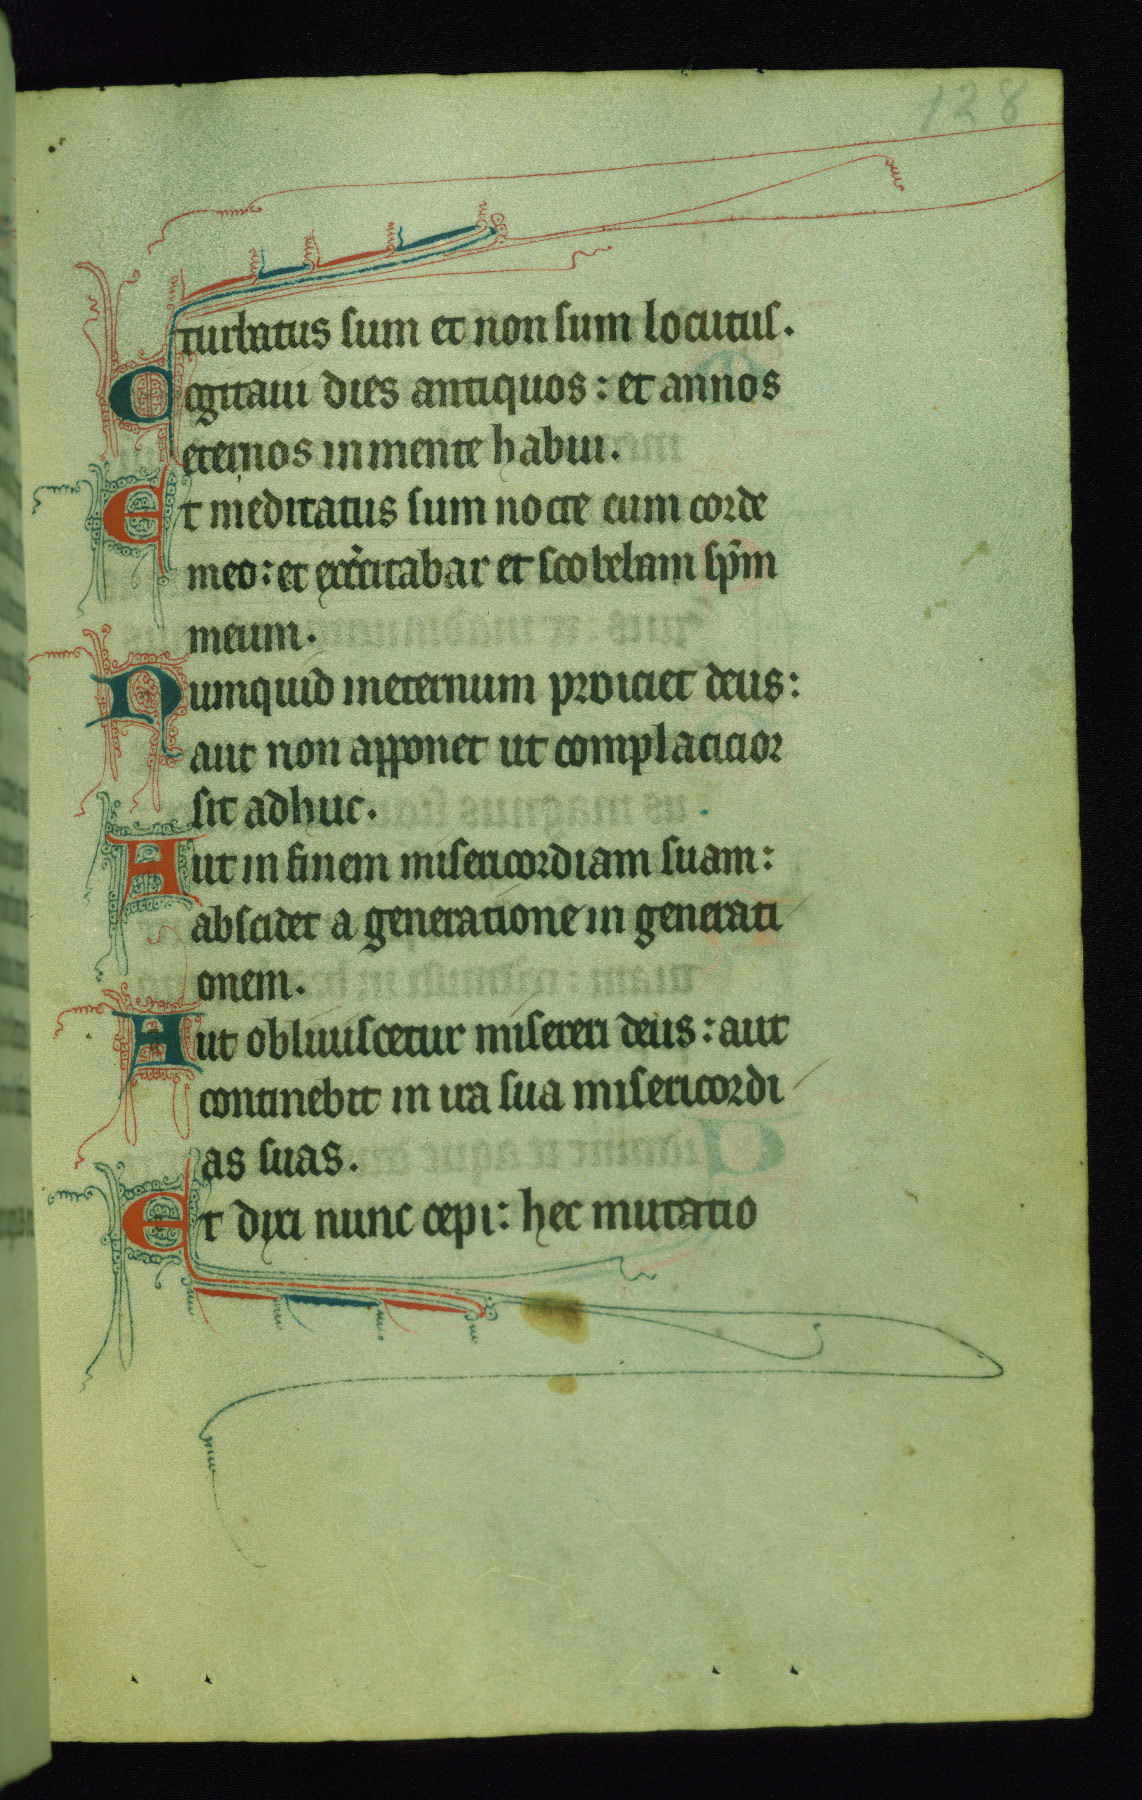 128
turbatus sum et non sum locutus.
Cogitaui dies antiquos: et annos
eternos in mente habui.
Et meditatus sum nocte cum corde
meo: et exercitabar et scobebam sp̄m
meum.
Numquid in eternum proiciet deus:
aut non apponet ut complacicior
sit adhuc.
Aut in finem misericordiam suam:
abscidet a generatione in generati
onem.
Aut obliuiscetur misereri deus: aut
continebit in ira sua misericordi
as suas.
Et dixi nunc cepi: hec mutatio